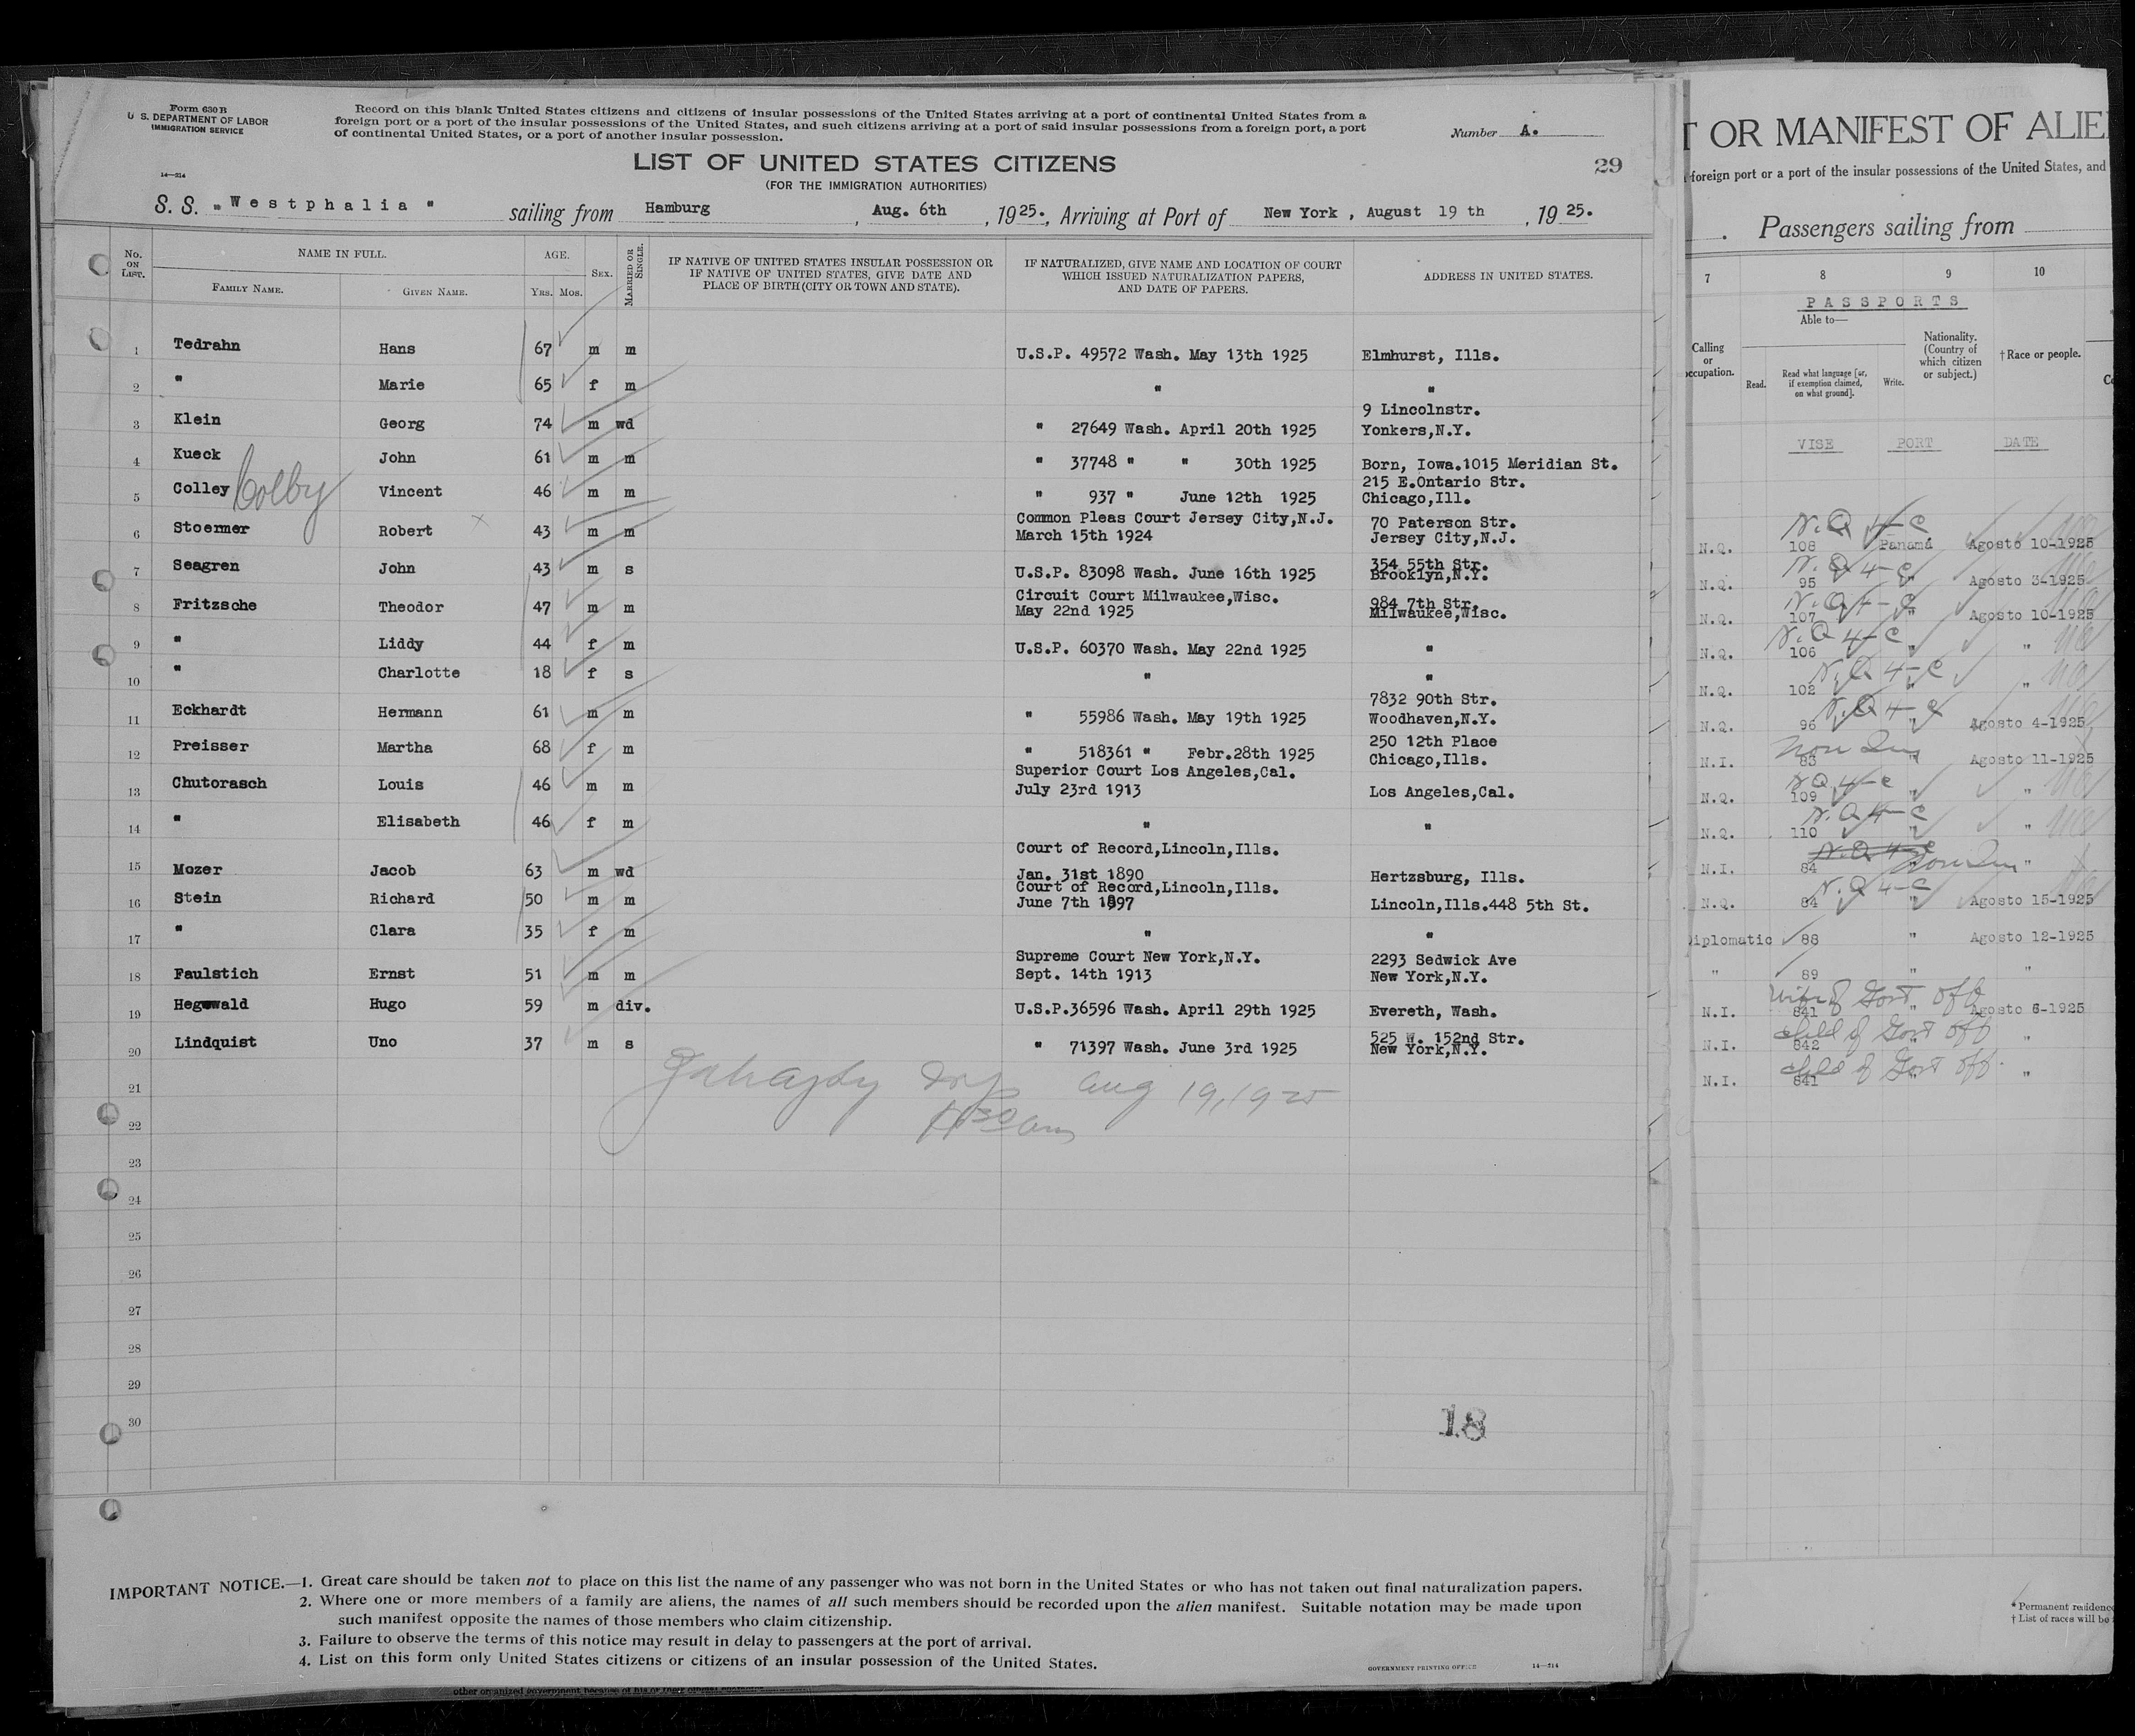 Form 630 B
U. S. DEPARTMENT OF LABOR
IMMIGRATION SERVICE
14—214
Record on this blank United States citizens and citizens of insular possessions of the United States arriving at a port of continental United States from a
foreign port or a port of the insular possessions of the United States, and such citizens arriving at a port of said insular possessions from a foreign port, a port
of continental United States, or a port of another insular possession.
Number A.
LIST OF UNITED STATES CITIZENS
29
(FOR THE IMMIGRATION AUTHORITIES)
S. S. "Westphalia" sailing from Hamburg, Aug. 6th, 1925., Arriving at Port of New York, August 19 th, 1925.
No. ON LIST.
NAME IN FULL.
FAMILY NAME. GIVEN NAME.
AGE.
YRS. MOS.
SEX.
MARRIED OR SINGLE.
IF NATIVE OF UNITED STATES INSULAR POSSESSION OR
IF NATIVE OF UNITED STATES, GIVE DATE AND
PLACE OF BIRTH (CITY OR TOWN AND STATE).
IF NATURALIZED, GIVE NAME AND LOCATION OF COURT
WHICH ISSUED NATURALIZATION PAPERS,
AND DATE OF PAPERS.
ADDRESS IN UNITED STATES.
1 Tedrahn Hans 67 m m U.S.P. 49572 Wash. May 13th 1925 Elmhurst, Ills.
2 " Marie 65 f m " "
3 Klein Georg 74 m wd " 27649 Wash. April 20th 1925 9 Lincolnstr.
Yonkers,N.Y.
4 Kueck John 61 m m " 37748 " " 30th 1925 Born, Iowa.1015 Meridian St.
5 Colley Colby Vincent 46 m m " 937 " June 12th 1925 215 E.Ontario Str.
Chicago,Ill.
6 Stoermer Robert 43 m m Common Pleas Court Jersey City,N.J. 70 Paterson Str.
March 15th 1924 Jersey City,N.J.
7 Seagren John 43 m s U.S.P. 83098 Wash. June 16th 1925 354 55th Str.
Brooklyn,N.Y.
8 Fritzsche Theodor 47 m m Circuit Court Milwaukee,Wisc. 984 7th Str.
May 22nd 1925 Milwaukee,Wisc.
9 " Liddy 44 f m U.S.P. 60370 Wash. May 22nd 1925 "
10 " Charlotte 18 f s " "
11 Eckhardt Hermann 61 m m " 55986 Wash. May 19th 1925 7832 90th Str.
Woodhaven,N.Y.
12 Preisser Martha 68 f m " 518361 " Febr.28th 1925 250 12th Place
Chicago,Ills.
13 Chutorasch Louis 46 m m Superior Court Los Angeles,Cal.
July 23rd 1913 Los Angeles,Cal.
14 " Elisabeth 46 f m " "
15 Mozer Jacob 63 m wd Court of Record,Lincoln,Ills.
Jan. 31st 1890 Hertzsburg, Ills.
16 Stein Richard 50 m m Court of Record,Lincoln,Ills.
June 7th 1897 Lincoln,Ills.448 5th St.
17 " Clara 35 f m " "
18 Faulstich Ernst 51 m m Supreme Court New York,N.Y. 2293 Sedwick Ave
Sept. 14th 1913 New York,N.Y.
19 Hegewald Hugo 59 m div. U.S.P.36596 Wash. April 29th 1925 Evereth, Wash.
20 Lindquist Uno 37 m s " 71397 Wash. June 3rd 1925 525 W. 152nd Str.
New York,N.Y.
21 Aug 19, 1925
22
23
24
25
26
27
28
29
30
18
IMPORTANT NOTICE.—1. Great care should be taken not to place on this list the name of any passenger who was not born in the United States or who has not taken out final naturalization papers.
2. Where one or more members of a family are aliens, the names of all such members should be recorded upon the alien manifest. Suitable notation may be made upon
such manifest opposite the names of those members who claim citizenship.
3. Failure to observe the terms of this notice may result in delay to passengers at the port of arrival.
4. List on this form only United States citizens or citizens of an insular possession of the United States.
GOVERNMENT PRINTING OFFICE 14—214
T OR MANIFEST OF ALIE
foreign port or a port of the insular possessions of the United States, and
. Passengers sailing from
7 8 9 10
PASSPORTS
Calling
or
occupation.
Able to—
Read. Read what language [or,
if exemption claimed,
on what ground]. Write.
Nationality.
(Country of
which citizen
or subject.)
† Race or people.
VISE PORT DATE
N.Q. 4-C
N.Q. 108 Panamá Agosto 10-1925
N.Q. 4-C
N.Q. 95 " Agosto 3-1925
N.Q. 4-C
N.Q. 107 " Agosto 10-1925
N.Q. 4-C
N.Q. 106 " "
N.Q. 4-C
N.Q. 102 " "
N.Q. 4-C
N.Q. 96 " Agosto 4-1925
Non Im
N.I. 83 " Agosto 11-1925
N.Q. 4-C
N.Q. 109 " "
N.Q. 4-C
N.Q. 110 " "
N.Q. 4-C Non Im
N.I. 84 "
N.Q. 4-C
N.Q. 84 " Agosto 15-1925
iplomatic 88 " Agosto 12-1925
" 89 " "
Wife of Govt off
N.I. 841 " Agosto 6-1925
child of Govt off
N.I. 842 " "
child of Govt off.
N.I. 841 " "
* Permanent residenc
† List of races will be